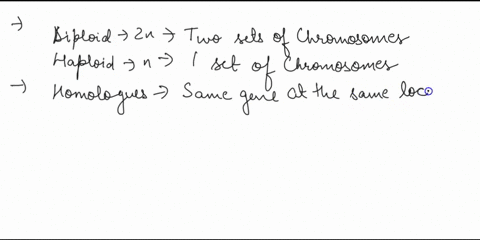 → Diploid → 2n → Two sets of Chromosomes
Haploid → n → 1 set of Chromosomes
→ Homologues → Same gene at the same loco